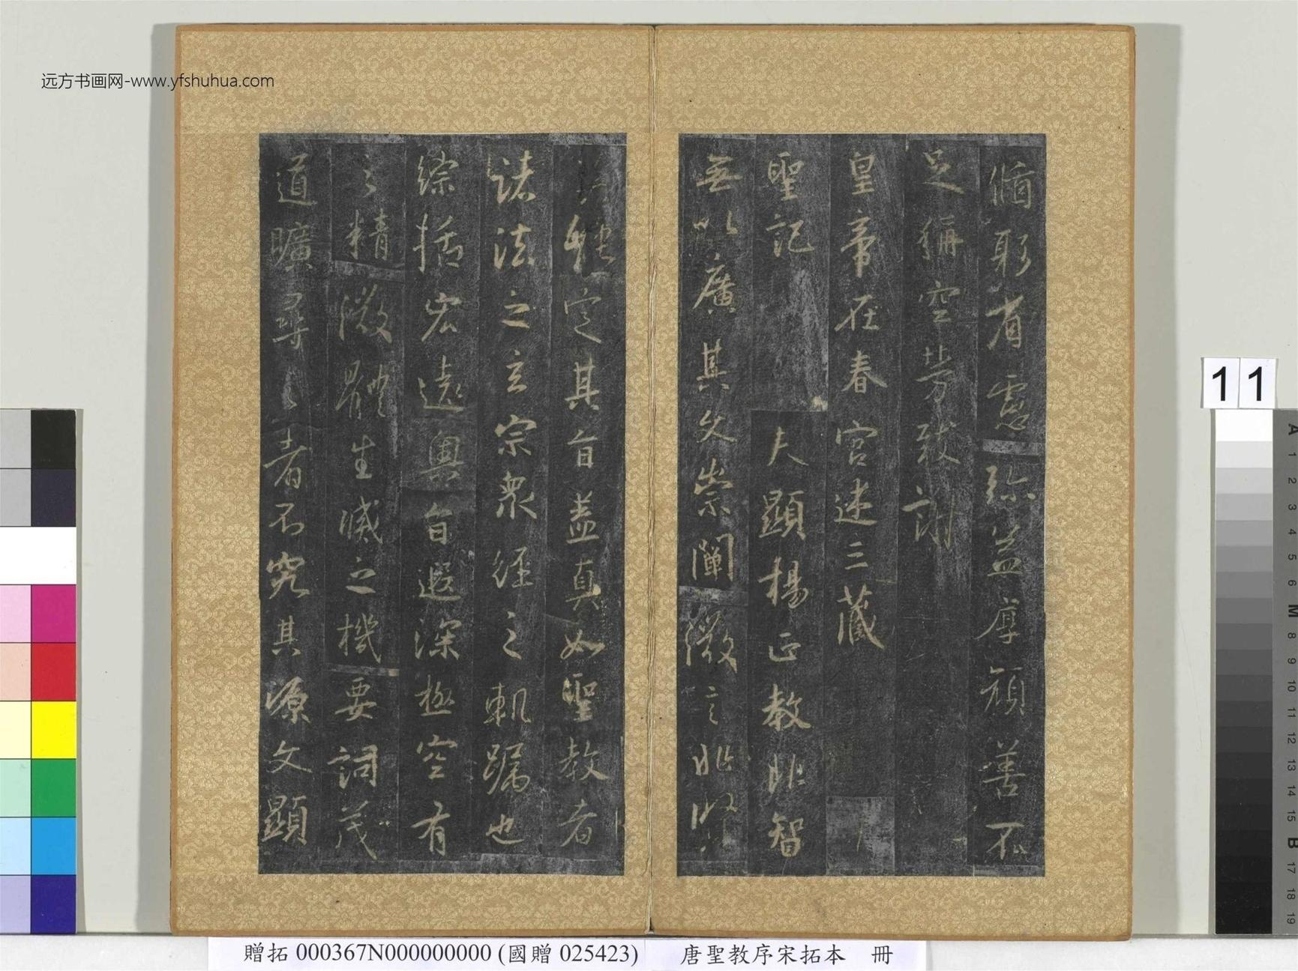 远方书画网-www.yfshuhua.com
脩躬省慮弥益厚顏善不
足稱空勞致謝
皇帝在春宮述三藏
聖記 夫顯揚正教非智
無以廣其文崇闡微言非賢
能定其旨盖真如聖教者
諸法之玄宗衆經之軌躅也
綜括宏遠奧旨遐深極空有
之精微體生滅之機要詞茂
道曠尋之者不究其源文顯
11
A 1 2 3 4 5 6 M 8 9 10 11 12 13 14 15 B 17 18 19
贈拓 000367N000000000 (國贈 025423) 唐聖教序宋拓本 冊